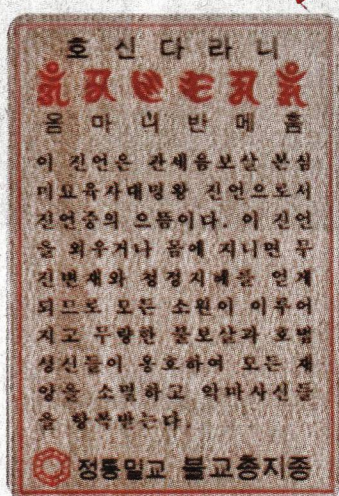 호 신 다 라 니
옴 마 니 반 메 훔
이 진언은 관세음보살 본심
미묘육자대명왕 진언으로서
진언중의 으뜸이다. 이 진언
을 외우거나 몸에 지니면 무
진변재와 청정지혜를 얻게
되므로 모든 소원이 이루어
지고 무량한 불보살과 호법
성신들이 옹호하여 모든 재
앙을 소멸하고 악마사신들
을 항복받는다.
정통밀교 불교총지종